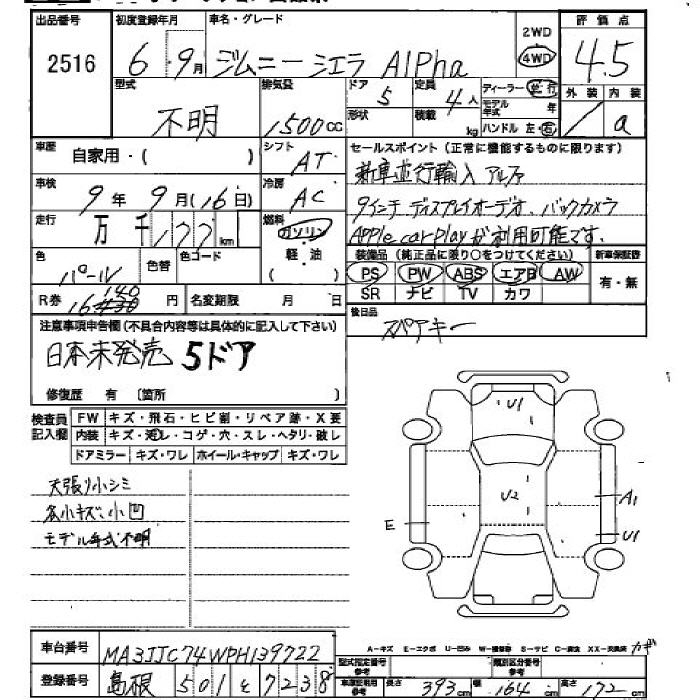 出品番号 初度登録年月 車名・グレード 2WD 評価点
2516 6・9月 ジムニーシエラ Alpha 4WD 4.5
型式 排気量 ドア 定員 ディーラー・並行 外装 内装
不明 1500cc 5 4人 モデル年式 年 / a
形状 積載 kg ハンドル 左・右
車歴 自家用・( ) シフト AT セールスポイント(正常に機能するものに限ります)
新車並行輸入 アルファ
車検 9年9月(16日) 冷房 AC 9インチ ディスプレイオーデオ、バックカメラ
走行 万千177km 燃料 ガソリン 軽・油 Apple carplayが利用可能です。
色 パール 色替 色コード 装備品(純正品に限り〇をつけてください) 新車保証書
PS PW ABS エアB AW 有・無
R券 円 名変期限 月 日 SR ナビ TV カワ
注意事項申告欄(不具合内容等は具体的に記入して下さい) 後日品
スペアキー
日本未発売 5ドア
修復歴 有 〔箇所 〕
検査員記入欄 FW キズ・飛石・ヒビ割・リペア跡・X要
内装 キズ・汚レ・コゲ・穴・スレ・ヘタリ・破レ
ドアミラー キズ・ワレ ホイール・キャップ キズ・ワレ
U1
U2
A1
E
U1
天張り小シミ
各小キズ、小凹
モデル年式不明
A-キズ E-エクボ U-凹み
車台番号 MA3JJC74WPH139722
型式指定番号 参考 類別区分番号 参考
登録番号 島根 501 を 7238 長さ 393cm 幅 164cm 高さ 172cm